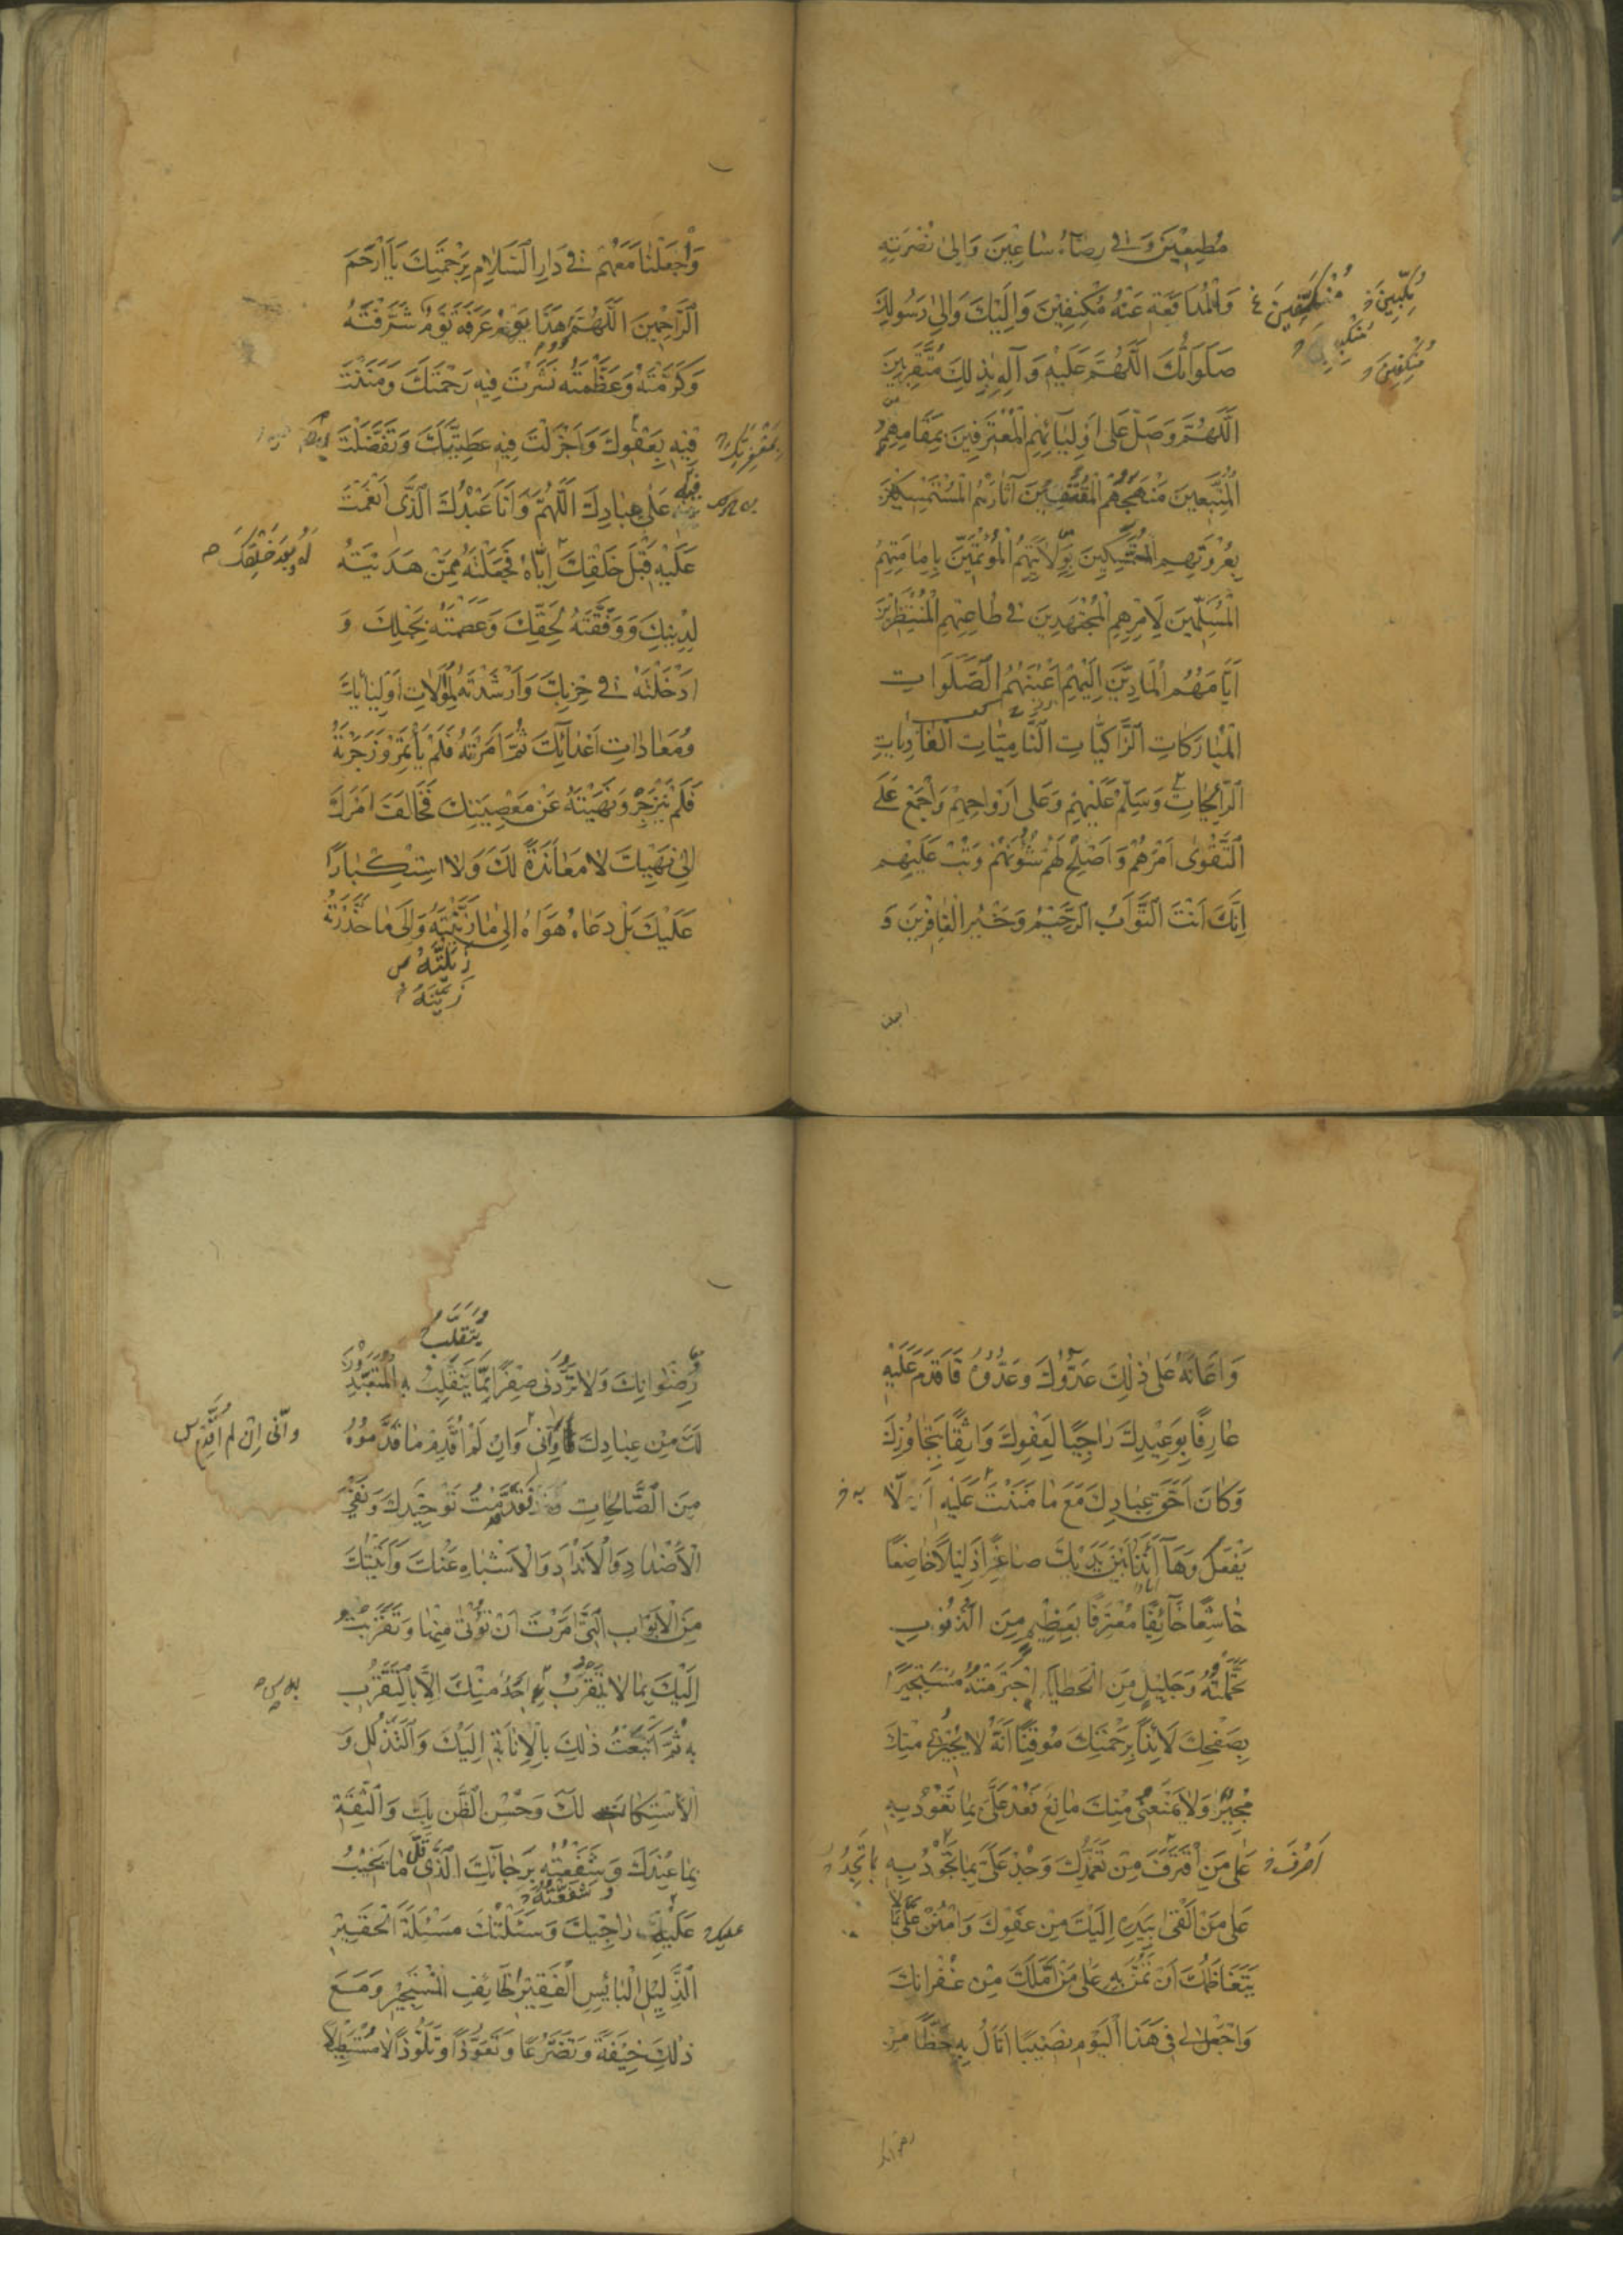 مُطِيعِينَ وَفِي رِضَاهُ سَاعِينَ وَاِلىٰ نُصْرَتِهِ
وَالْمُدَافَعَةِ عَنْهُ مُكْنِفِينَ وَاِلَيْكَ وَاِلىٰ رَسُولِكَ
صَلَوَاتُكَ اَللّٰهُمَّ عَلَيْهِ وَآلِهِ بِذٰلِكَ مُتَقَرِّبِينَ
اَللّٰهُمَّ وَصَلِّ عَلىٰ اَوْلِيَآئِهِمِ الْمُعْتَرِفِينَ بِمَقَامِهِمُ
الْمُتَّبِعِينَ مَنْهَجَهُمُ الْمُقْتَفِينَ آثَارَهُمُ الْمُسْتَمْسِكِينَ
بِعُرْوَتِهِمِ الْمُتَمَسِّكِينَ بِوِلَايَتِهِمُ الْمُؤْتَمِّينَ بِاِمَامَتِهِمُ
الْمُسَلِّمِينَ لِاَمْرِهِمِ الْمُجْتَهِدِينَ فِي طَاعَتِهِمِ الْمُنْتَظِرِينَ
اَيَّامَهُمُ الْمَادِّينَ اِلَيْهِمْ اَعْيُنَهُمُ الصَّلَوَاتِ
الْمُبَارَكَاتِ الزَّاكِيَاتِ النَّامِيَاتِ الْغَادِيَاتِ
الرَّائِحَاتِ وَسَلِّمْ عَلَيْهِمْ وَعَلىٰ اَرْوَاحِهِمْ وَاجْمَعْ عَلَى
التَّقْوىٰ اَمْرَهُمْ وَاَصْلِحْ لَهُمْ شُؤُنَهُمْ وَتُبْ عَلَيْهِمْ
اِنَّكَ اَنْتَ التَّوَّابُ الرَّحِيمُ وَخَيْرُ الْغَافِرِينَ وَ
وَاجْعَلْنَا مَعَهُمْ فِي دَارِ السَّلَامِ بِرَحْمَتِكَ يَا اَرْحَمَ
الرَّاحِمِينَ اَللّٰهُمَّ هٰذَا يَوْمُ عَرَفَةَ يَوْمٌ شَرَّفْتَهُ
وَكَرَّمْتَهُ وَعَظَّمْتَهُ نَشَرْتَ فِيهِ رَحْمَتَكَ وَمَنَنْتَ
فِيهِ بِعَفْوِكَ وَاَجْزَلْتَ فِيهِ عَطِيَّتَكَ وَتَفَضَّلْتَ
عَلىٰ عِبَادِكَ اَللّٰهُمَّ وَاَنَا عَبْدُكَ الَّذِي اَنْعَمْتَ
عَلَيْهِ قَبْلَ خَلْقِكَ اِيَّاهُ فَجَعَلْتَهُ مِمَّنْ هَدَيْتَهُ
لَهُ وَبَعْدَ خَلْقِكَ
لِدِينِكَ وَوَفَّقْتَهُ لِحَقِّكَ وَعَصَمْتَهُ بِحَبْلِكَ وَ
اَدْخَلْتَهُ فِي حِزْبِكَ وَاَرْشَدْتَهُ لِمُوَالَاتِ اَوْلِيَائِكَ
وَمُعَادَاتِ اَعْدَائِكَ ثُمَّ اَمَرْتَهُ فَلَمْ يَأْتَمِرْ وَزَجَرْتَهُ
فَلَمْ يَنْزَجِرْ وَنَهَيْتَهُ عَنْ مَعْصِيَتِكَ فَخَالَفَ اَمْرَكَ
اِلىٰ نَهْيِكَ لَا مُعَانَدَةً لَكَ وَلَا اسْتِكْبَارًا
عَلَيْكَ بَلْ دَعَاهُ هَوَاهُ اِلىٰ مَا زَيَّلْتَهُ وَاِلىٰ مَا حَذَّرْتَهُ
زَيَّلْتَهُ
زَيَّنْتَهُ
وَاَعَانَهُ عَلىٰ ذٰلِكَ عَدُوُّكَ وَعَدُوُّهُ فَاَقْدَمَ عَلَيْهِ
عَارِفًا بِوَعِيدِكَ رَاجِيًا لِعَفْوِكَ وَاثِقًا بِتَجَاوُزِكَ
وَكَانَ اَحَقَّ عِبَادِكَ مَعَ مَا مَنَنْتَ عَلَيْهِ اَلَّا
يَفْعَلَ وَهَا اَنَا ذَا بَيْنَ يَدَيْكَ صَاغِرًا ذَلِيلًا خَاضِعًا
خَاشِعًا خَآئِفًا مُعْتَرِفًا بِعَظِيمٍ مِنَ الذُّنُوبِ
تَحَمَّلْتُهُ وَجَلِيلٍ مِنَ الْخَطَايَا اجْتَرَمْتُهُ مُسْتَجِيرًا
بِصَفْحِكَ لَائِذًا بِرَحْمَتِكَ مُوقِنًا اَنَّهُ لَا يُجِيرُنِي مِنْكَ
مُجِيرٌ وَلَا يَمْنَعُنِي مِنْكَ مَانِعٌ فَعُدْ عَلَيَّ بِمَا تَعُودُ بِهِ
عَلىٰ مَنِ اقْتَرَفَ مِنْ تَغَمُّدِكَ وَجُدْ عَلَيَّ بِمَا تَجُودُ بِهِ
عَلىٰ مَنْ اَلْقىٰ بِيَدِهِ اِلَيْكَ مِنْ عَفْوِكَ وَامْنُنْ عَلَيَّ بِمَا لَا
يَتَعَاظَمُكَ اَنْ تَمُنَّ بِهِ عَلىٰ مَنْ اَمَّلَكَ مِنْ غُفْرَانِكَ
وَاجْعَلْ لِي فِي هٰذَا الْيَوْمِ نَصِيبًا اَنَالُ بِهِ حَظًّا مِنْ
يَتَقَلَّبُ
رِضْوَانِكَ وَلَا تَرُدَّنِي صِفْرًا مِمَّا يَنْقَلِبُ بِهِ الْمُتَعَبِّدُونَ
لَكَ مِنْ عِبَادِكَ وَاِنِّي وَاِنْ لَمْ اُقَدِّمْ مَا قَدَّمُوهُ
وَاِنِّي اِنْ لَمْ اُقَدِّمْ
مِنَ الصَّالِحَاتِ فَقَدْ قَدَّمْتُ تَوْحِيدَكَ وَنَفْيَ
الْاَضْدَادِ وَالْاَنْدَادِ وَالْاَشْبَاهِ عَنْكَ وَاَتَيْتُكَ
مِنَ الْاَبْوَابِ الَّتِي اَمَرْتَ اَنْ تُؤْتىٰ مِنْهَا وَتَقَرَّبْتُ
اِلَيْكَ بِمَا لَا يَقْرُبُ بِهِ اَحَدٌ مِنْكَ اِلَّا بِالتَّقَرُّبِ
بِهِ ثُمَّ اَتْبَعْتُ ذٰلِكَ بِالْاِنَابَةِ اِلَيْكَ وَالتَّذَلُّلِ وَ
الْاِسْتِكَانَةِ لَكَ وَحُسْنِ الظَّنِّ بِكَ وَالثِّقَةِ
بِمَا عِنْدَكَ وَشَفَعْتُهُ بِرَجَائِكَ الَّذِي قَلَّ مَا يَخِيبُ
وَشَفَّعْتُهُ
عَلَيْهِ رَاجِيكَ وَسَئَلْتُكَ مَسْئَلَةَ الْحَقِيرِ
الذَّلِيلِ الْبَائِسِ الْفَقِيرِ الْخَائِفِ الْمُسْتَجِيرِ وَمَعَ
ذٰلِكَ خِيفَةً وَتَضَرُّعًا وَتَعَوُّذًا وَتَلَوُّذًا لَا مُسْتَطِيلًا